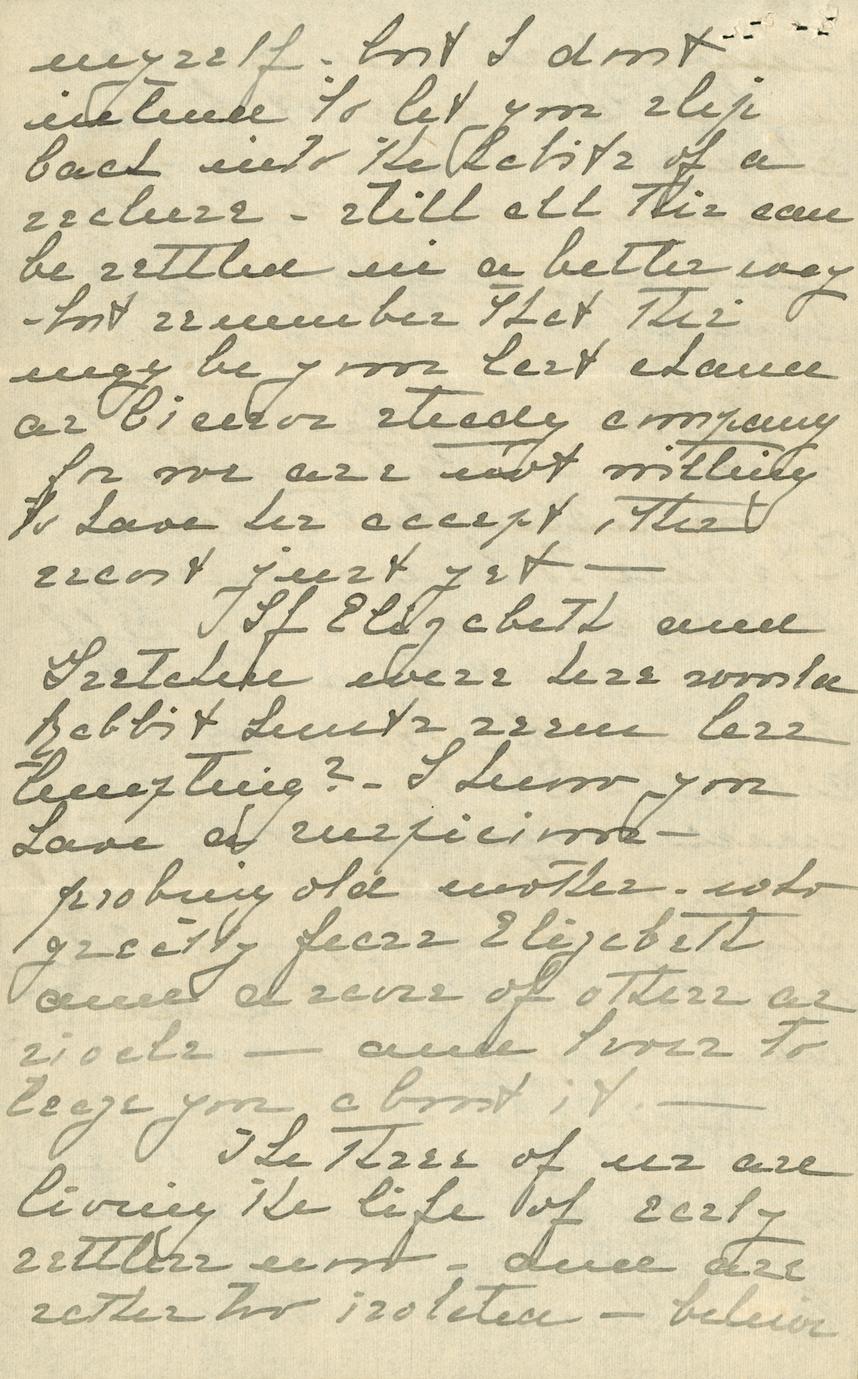 myself - but I don't
intend to let you slip
back into the habits of a
recluse - still all this can
be settled in a better way
- but remember that this
may be your last chance
as Eleanor steady company
for we are not willing
to have her accept,
just yet —
If Elizabeth and
Gretchen were here would
Rabbit hunts seem less
tempting? - I know you
have a suspicious -
probing old mother - who
greatly fears Elizabeth
and a score of others as
rivals — and loves to
tease you about it. —
The three of us are
living the life of early
settlers now - and are
rather too isolated — believe